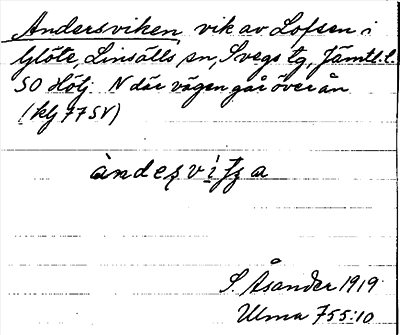 Andersviken vik av Lofsen i
Glöte, Linsälls sn, Svegs tg, Jämtl. l.
SO Hölj. N där vägen går över ån
(klj 77 SV)
àndesvi̍tja
S. Åsander 1919
Ulma 755:10